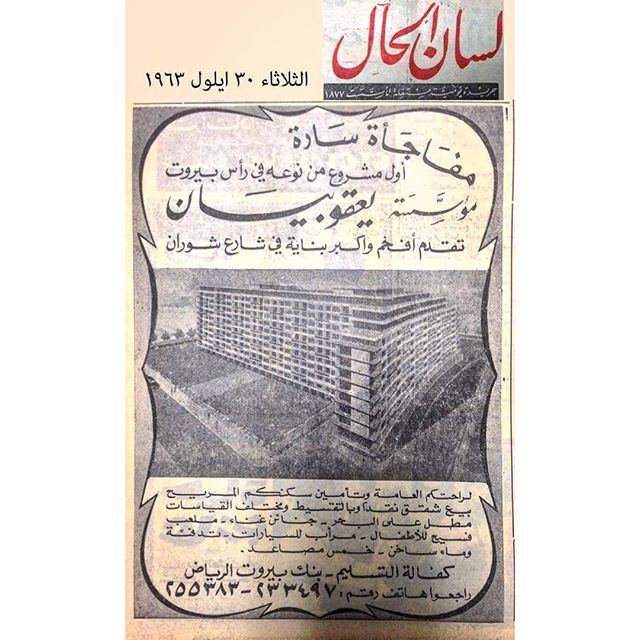 لسان الحال
جريدة يومية مستقلة تأسست ١٨٧٧
الثلاثاء ٣٠ ايلول ١٩٦٣
مفاجأة سارة
أول مشروع من نوعه في رأس بيروت
مؤسسة يعقوبيان
تقدم أفخم واكبر بناية في شارع شوران
لراحتكم العامة وتأمين سكنكم المريح
بيع شقق نقداً وبالتقسيط ومختلف القياسات
مطل على البحر - جنائن غناء - ملعب
فسيح للأطفال - مرآب للسيارات - تدفئة
وماء ساخن - خمس مصاعد -
كفالة التسليم - بنك بيروت الرياض
راجعوا هاتف رقم: ٢٣٣٤٩٧-٢٥٥٣٨٣